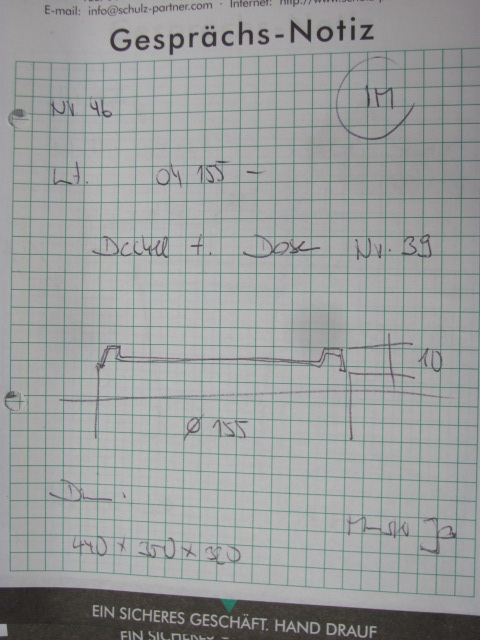 E-mail: info@schulz-partner.com · Internet: http://www.schulz-
Gesprächs-Notiz
Nr 46
1M
Lt. 04 155 -
Deckel f. Dose Nr. 39
10
Ø 155
440 x 350 x 320
EIN SICHERES GESCHÄFT. HAND DRAUF
EIN SICHERES